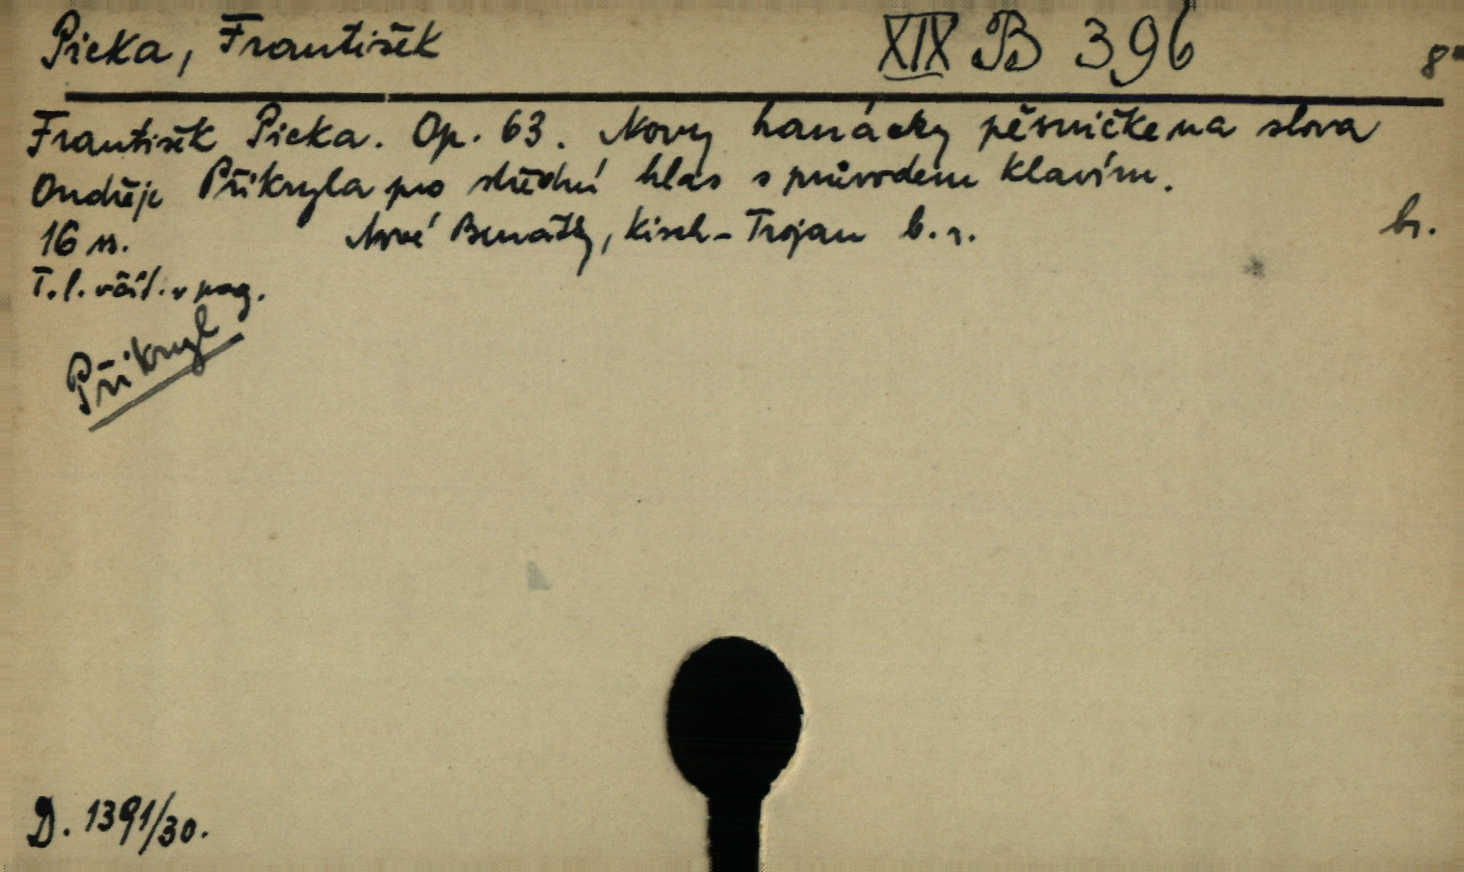 Picka, František XIX B 396 8°
František Picka. Op. 63. Novy hanácky pěsničke na slova
Ondřeje Přikryla pro střední hlas s průvodem klavíru.
16 s. Nové Benátky, Kisch-Trojan b. r. br.
T. l. včít. v pag.
Přikryl
D. 1391/30.